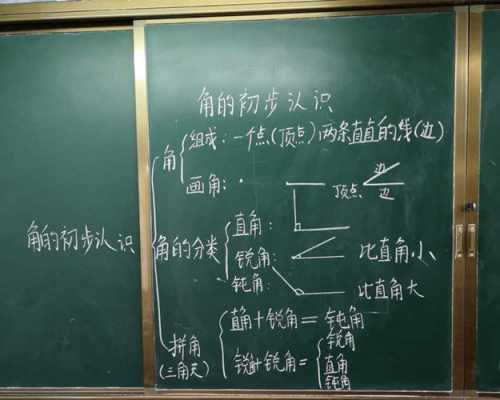 角的初步认识
角的初步认识
角
组成：一个点(顶点)两条直直的线(边)
画角：
顶点 边 边
角的分类
直角：
锐角： 比直角小
钝角： 比直角大
拼角
(三角尺)
直角+锐角=钝角
锐角+锐角=
锐角
直角
钝角